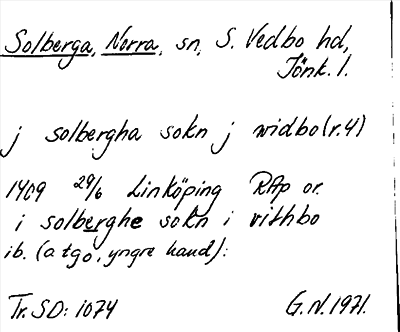 Solberga, Norra, sn, S. Vedbo hd,
Jönk. l.
j solbergha sokn j widbo (r. 4)
1409 29/6 Linköping RAp or.
i solberghe sokn i vithbo
ib. (a tgo, yngre hand):
Tr. SD: 1074
G.N. 1971.